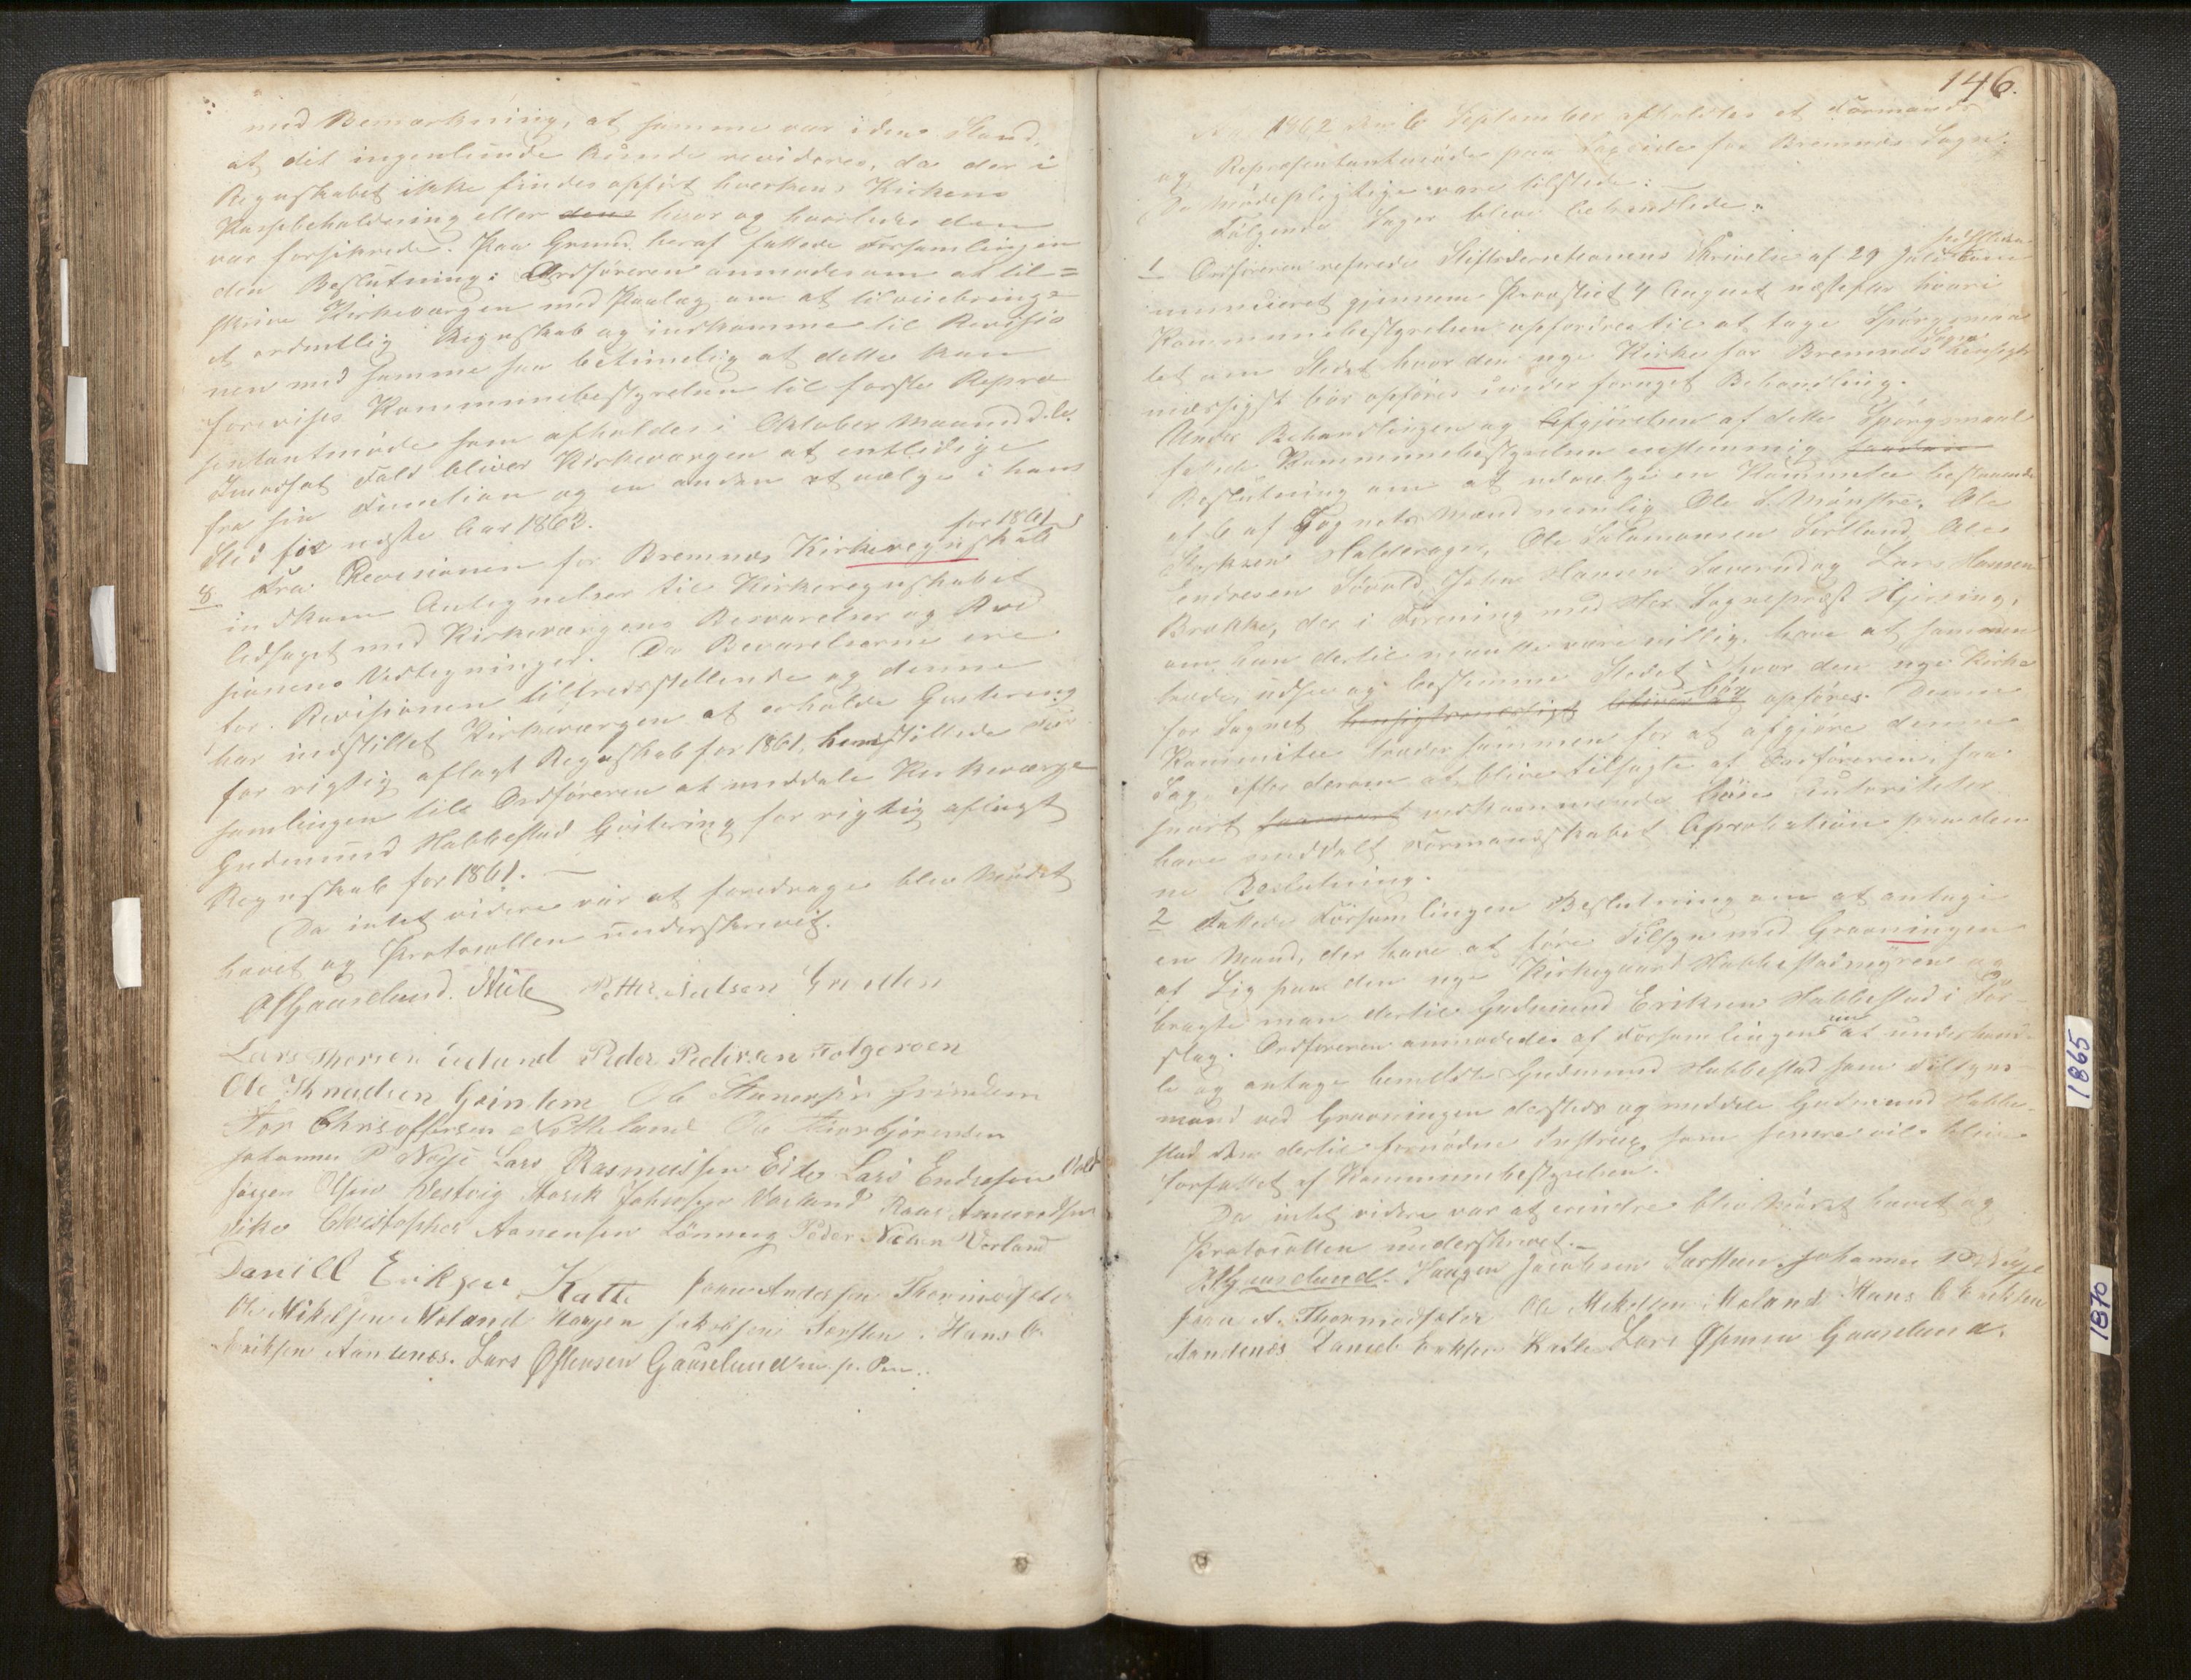 med Bemærkning, at samme var i den Stand,
at det ingenlunde kunde revideres, da der i
Regnskabet ikke findes opført hverken Kirkens
Kassebeholdning eller den hvor og hvorledes den
var forsikrede. Paa Grund heraf fattede Forsamlingen
den Beslutning: Ordføreren anmodes om at til=
skrive Kirkeværgen med Paalæg om at tilveiebringe
et ordentlig Regnskab og indkomme til Revisio
nen med samme saa betimelig at dette kan
forevises Kommunebestyrelsen til første Repræ
sentantmøde som afholdes i Oktober Maaned d. A.
Imodsat Fald bliver Kirkeværgen at entledige
fra sin Function og en anden at vælge i hans
Sted for næste Aar 1863.
8 Fra Revisionen for Bremnæs Kirkeregnskab for 1861
indkom Antegnelser til Kirkeregnskabet
ledsaget med Kirkeværgens Besvarelser og Revi
sionens Vedtegninger. Da Besvarelserne ere
for Revisionen tilfredsstillende og denne
har indstillet Kirkeværgen at erholde Qvitering
for rigtig aflagt Regnskab for 1861, hemstillede For
samlingen til Ordføreren at meddele Kirkeværge
Gudmund Habbestad Qvitering for rigtig aflagt
Regnskab for 1861. —
Da intet videre var at foredrage blev Mødet
hævet og Protocollen underskrevet.
O Gaaselund. Petter Nielsen
Lars Thorsen Peder Pedersen Folgeroen
Ole Knudsen Grindem Ole Grindem
Tor Chrisoffersen Nøtteland Ole Thorbjørnsen
Johannes P Nøsse Lars Rasmussen Eide Lars Endresen Vold
Jørgen Olsen Westvig Størk Johnsson Vorland Roar Amundsen
Christopher Aanensen Lønning Peder Nielsen Vorland
Daniell Eriksen Katte Joen Andersen Thormodsæter
Ole Mikelsen Moland Haagen Jakobsen Sortlan. Hans C.
Eriksen Aandenæs. Lars Østensen Gaaselund m. p. Pen..
146.
Aar 1862 den 6 September afholdtes et Formands
og Repræsentantmøde paa for Bremnæs Sogn.
De mødepligtige vare tilstede:
Følgende Sager bleve behandlede:
1 Ordføreren refererede Stiftsdirectionens Skrivelse af 29 Juli kom
municeret gjennem Provstiet 4 August næstefter hvori
Kommunebestyrelsen opfordres til at tage Spørgsmaa
let om Stedet hvor den nye Kirke for Bremnæs Sogn hensigts
mæssigst bør opføres under fornyet Behandling.
Under Behandlingen og Afgjørelsen af dette Spørgsmaal
fattede Kommunebestyrelsen eenstemmig saadan
Beslutning om at udvælge en Kommitee bestaaende
af 6 af Sognets Mænd nemlig Ole S. Mønstre, Ole
Halderager, Ole Salamonsen Sortland, Ole
Endresen Søvold, John Hansen Laverud og Lars Hansen
Brække, der i Forening med Hr. Sognepræst Hjersing,
om han dertil maatte være villig, have at sammen
træde, udsee og bestemme Stedet hvor den nye Kirke
for Sognet hensigtsmæssigst bliver at bør opføres. Denne
Kommitee træder sammen for at afgjøre denne
Sag, efter derom at blive tilsagte af Ordføreren, saa
snart vedkommende høie Autoriteter
have meddelt Formandskabet Aprobation paa den
ne Beslutning.
2 Fattede Forsamlingen Beslutning om at antage
en Mand, der have at føre Tilsyn med Gravningen
af Lig paa den nye Kirkegaard Habbestadmyrene og
bragte man dertil Gudmund Eriksen Habbestad i For-
slag. Ordføreren anmodedes af Forsamlingen om at underhand-
le og antage bemeldte Gudmund Habbestad som Tilsyns-
mand ved Gravningen dersteds og meddele Gudmund Habbe-
stad den dertil fornødne Instrux, som senere vil blive
forfattet af Kommunebestyrelsen.
Da intet videre var at erindre blev Mødet hævet og
Protocollen underskrevet. —
O Gaaselund. Haagen Jacobsen Sortlan. Johannes P Nøsse
Joen A. Thormodsæter Ole Mikelsen Moland Hans C Eriksen
Aandenæs Daniel Eriksen Katte Lars Østensen Gaaselund.
1865
1870